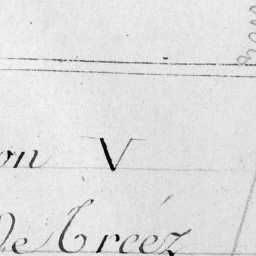 on V
De Créez